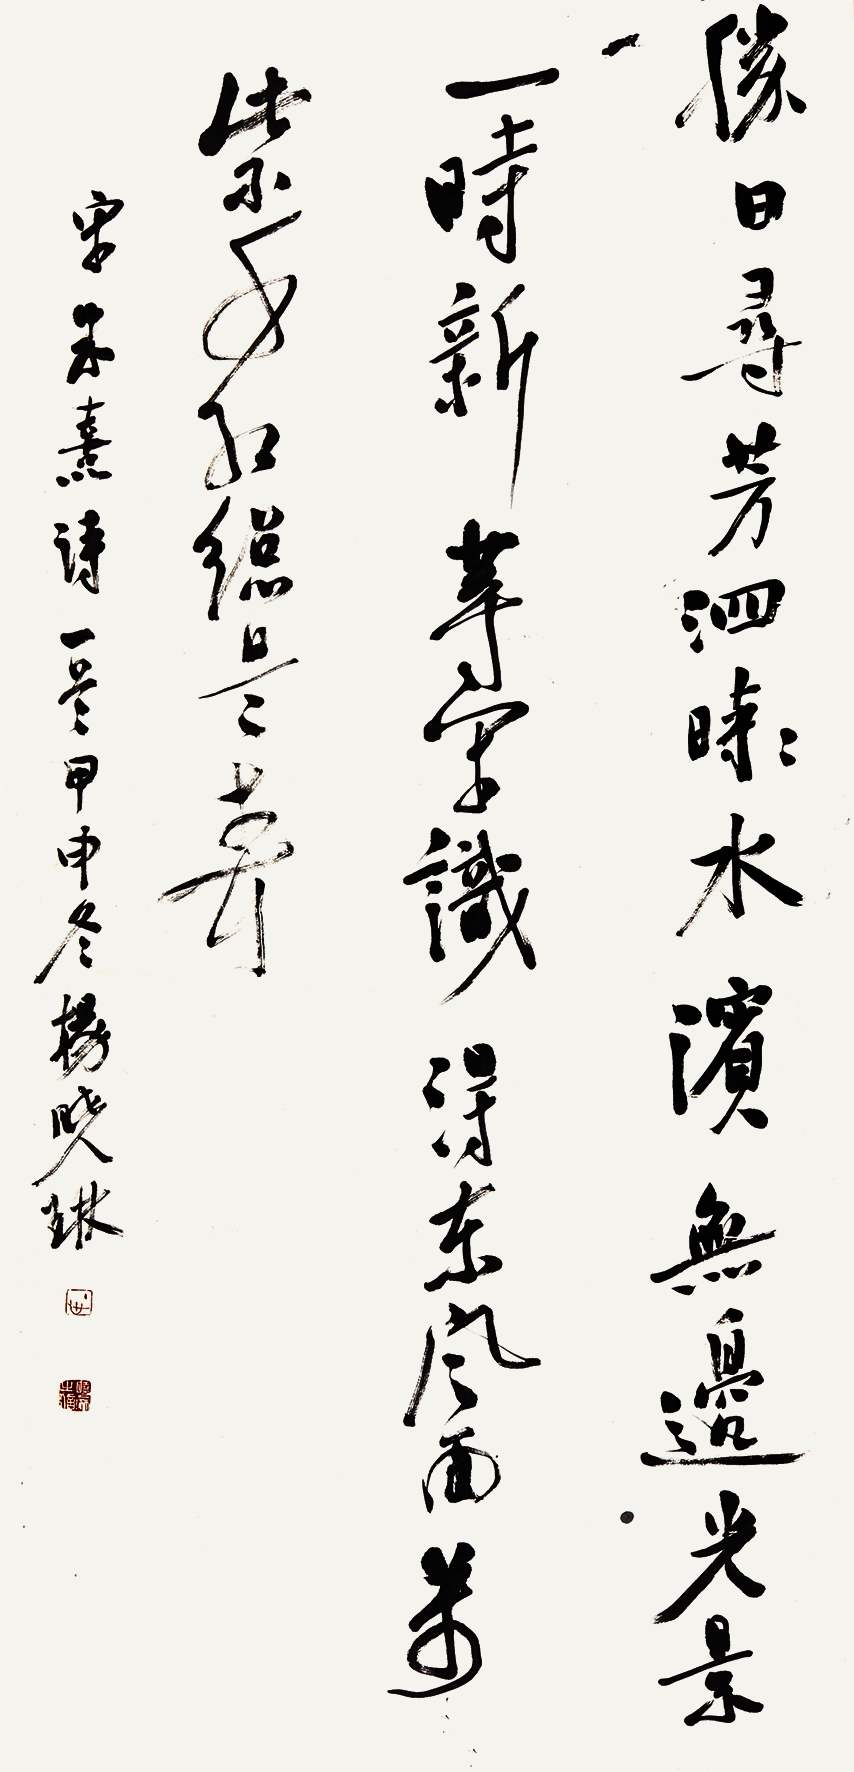 勝日尋芳泗時水濱無邊光景
一時新等閒識得東風面萬
紫千红總是春
宋朱熹詩一首甲申冬楊晓琳